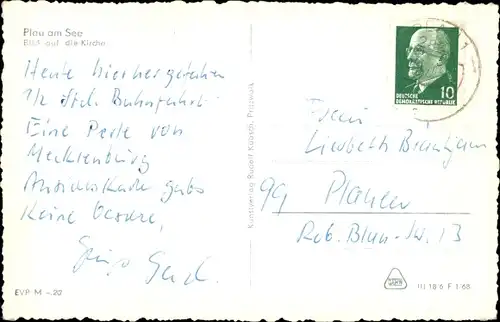 Plau am See
Blick auf die Kirche
Heute hierher gefahren
1/2 std. Bahnfahrt
Eine Perle von
Mecklenburg
Ansichtskarte gabs
Keine bessere,
Gruß Gerd.
EVP M -.20
Kunstverlag Rudolf Pritzwalk
10
DEUTSCHE
DEMOKRATISCHE REPUBLIK
Frau
99 Plauen
Rob. Blum-Str. 13
III 18 6 F 1/68